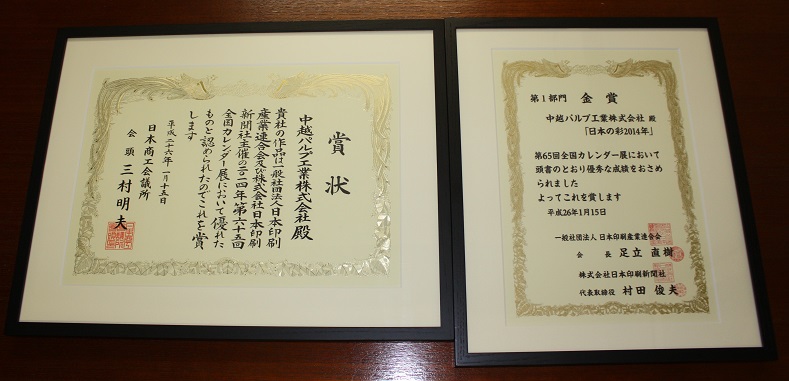 賞状
中越パルプ工業株式会社 殿
貴社の作品は一般社団法人日本印刷
産業連合会及び株式会社日本印刷
新聞社主催の二〇一四年第六十五回
全国カレンダー展において優れた
ものと認められたのでこれを賞
します
平成二十六年一月十五日
日本商工会議所
会頭 三村明夫
第1部門 金賞
中越パルプ工業株式会社 殿
「日本の彩2014年」
第65回全国カレンダー展において
頭書のとおり優秀な成績をおさめ
られました
よってこれを賞します
平成26年1月15日
一般社団法人 日本印刷産業連合会
会長 足立直樹
株式会社日本印刷新聞社
代表取締役 村田俊夫